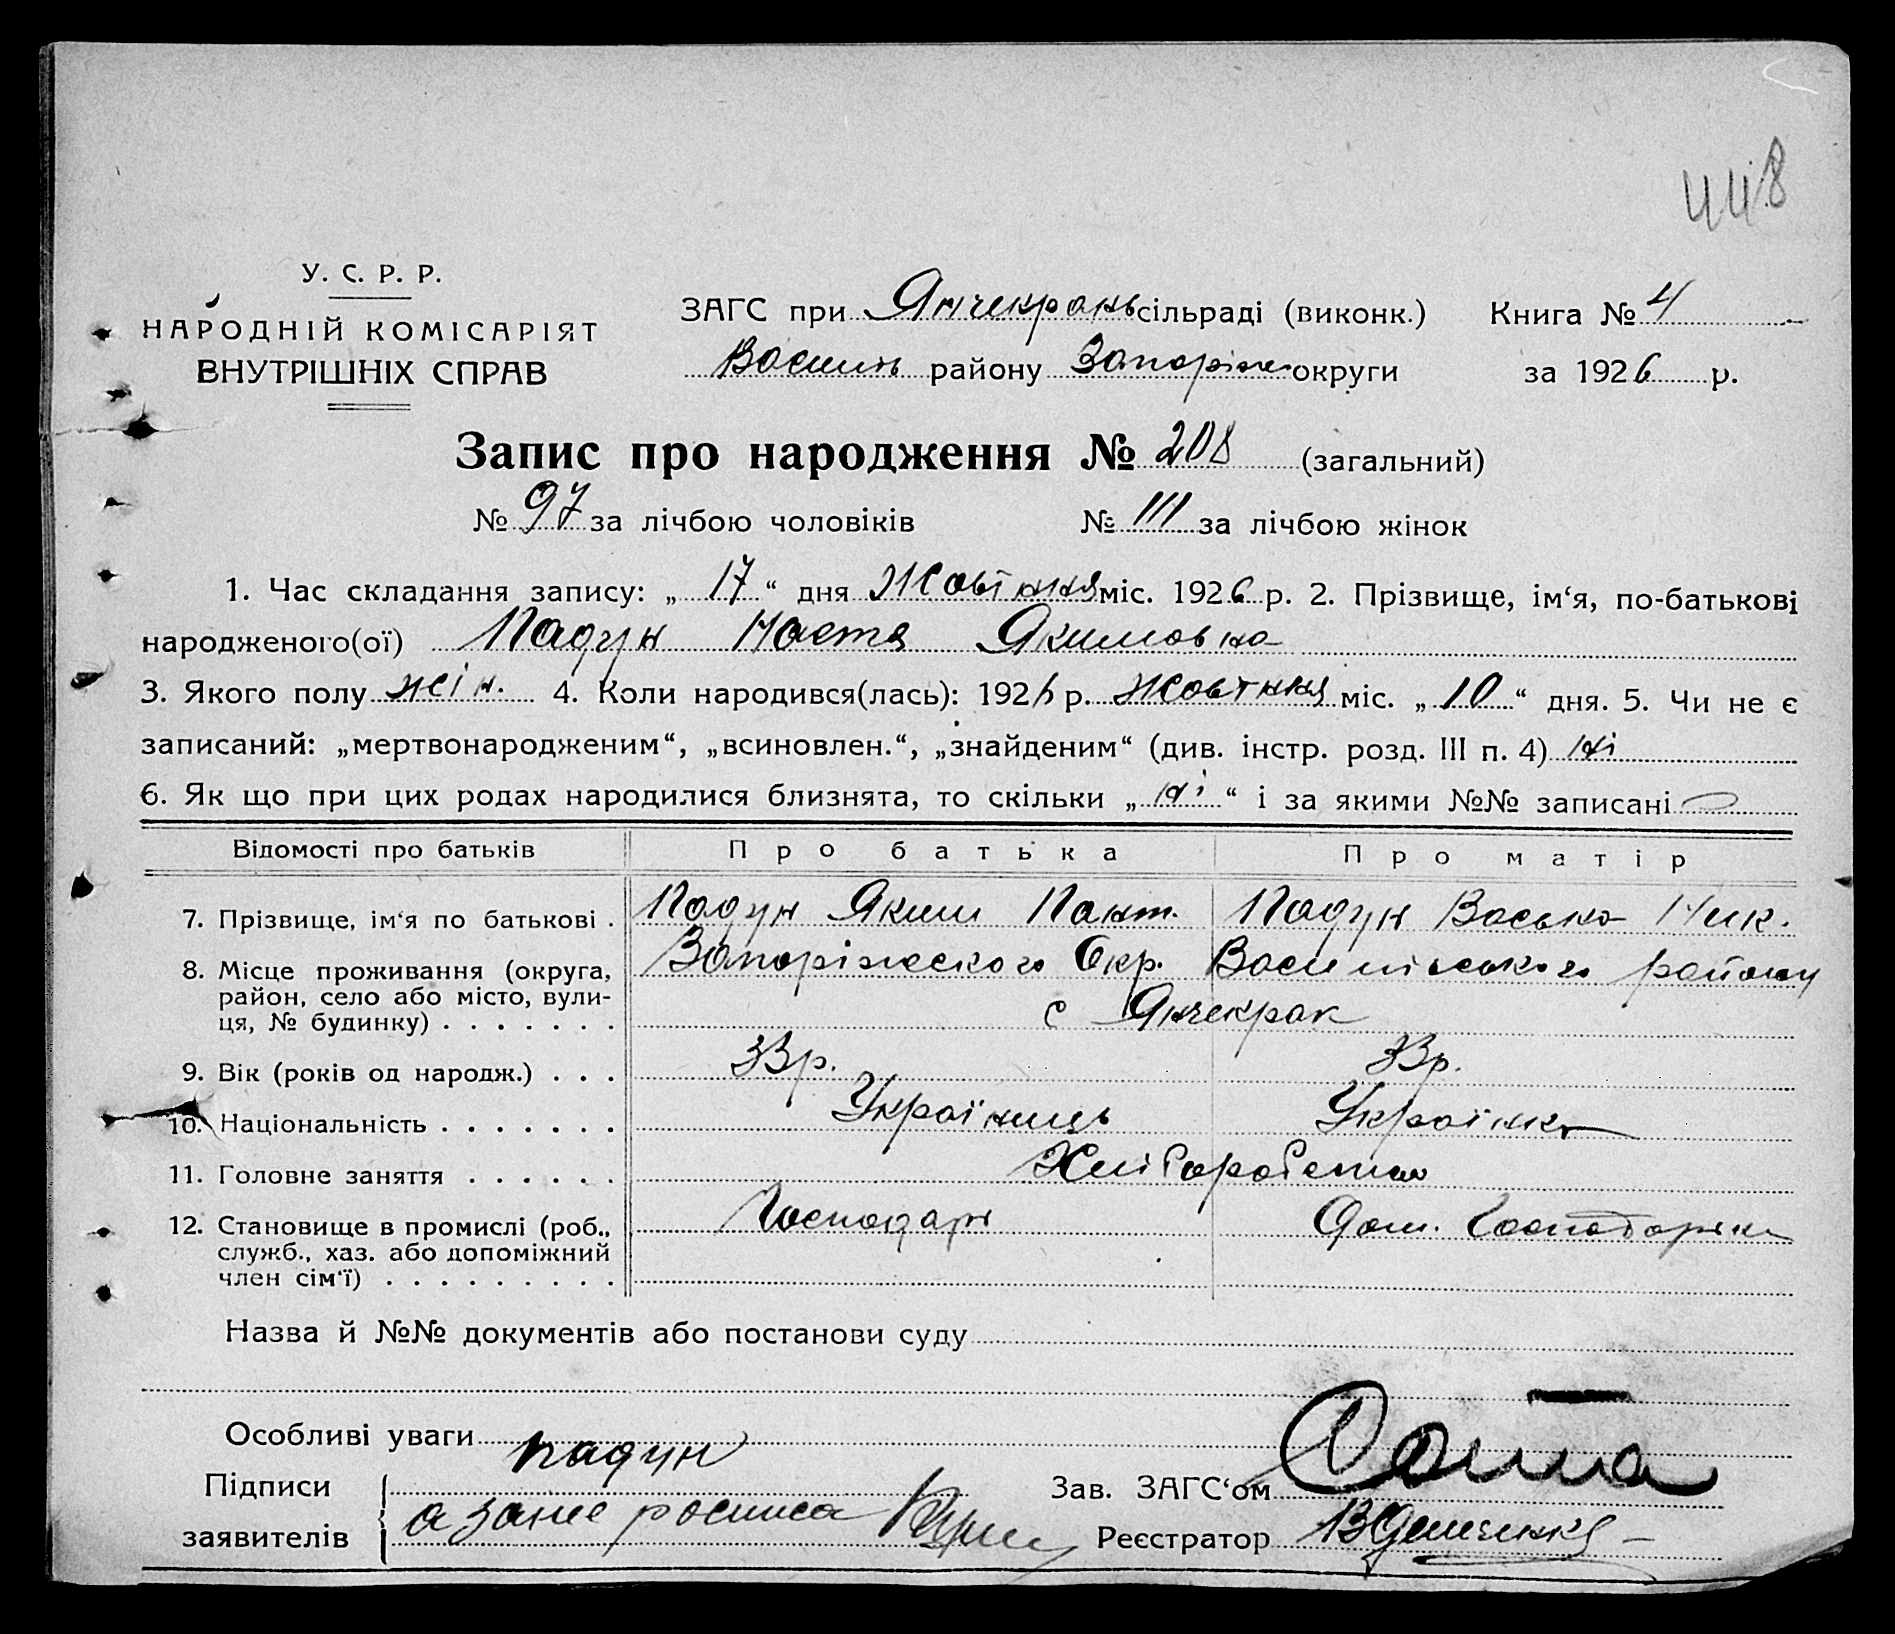 448
У. С. Р. Р.
НАРОДНІЙ КОМІСАРІЯТ
ВНУТРІШНІХ СПРАВ
ЗАГС при Янчекракьсільраді (виконк.) Книга № 4
Василь району Запоріж округи за 1926 р.
Запис про народження № 208 (загальний)
№ 97 за лічбою чоловіків № 111 за лічбою жінок
1. Час складання запису: „ 17 “ дня Жовтння міс. 1926 р. 2. Прізвище, ім‘я, по-батькові
народженого(ої) Падун Настя Якимовна
3. Якого полу жін. 4. Коли народився(лась): 1926 р. Жовтння міс. „ 10 “ дня. 5. Чи не є
записаний: „мертвонародженим“, „всиновлен.“, „знайденим“ (див. інстр. розд. III п. 4) ні
6. Як що при цих родах народилися близнята, то скільки „ ні “ і за якими №№ записані
Відомості про батьків Про батька Про матір
7. Прізвище, ім‘я по батькові . Падун Яким Пант. Падун Васька Ник.
8. Місце проживання (округа, Запоріжського Окр. Василівського району
район, село або місто, вули-
ця, № будинку) . . . . . . . с Янчекрак
9. Вік (років од народж.) . . . 33р. 33р.
10. Національність . . . . . . . Українець Українка
11. Головне заняття . . . . . . Хліборобство
12. Становище в промислі (роб., Господарь Дом. Господарка
служб., хаз. або допоміжний
член сім‘ї) . . . . . . . . .
Назва й №№ документів або постанови суду
Особливі уваги
Підписи падун Зав. ЗАГС‘ом
заявителів а за нее росписа Реєстратор